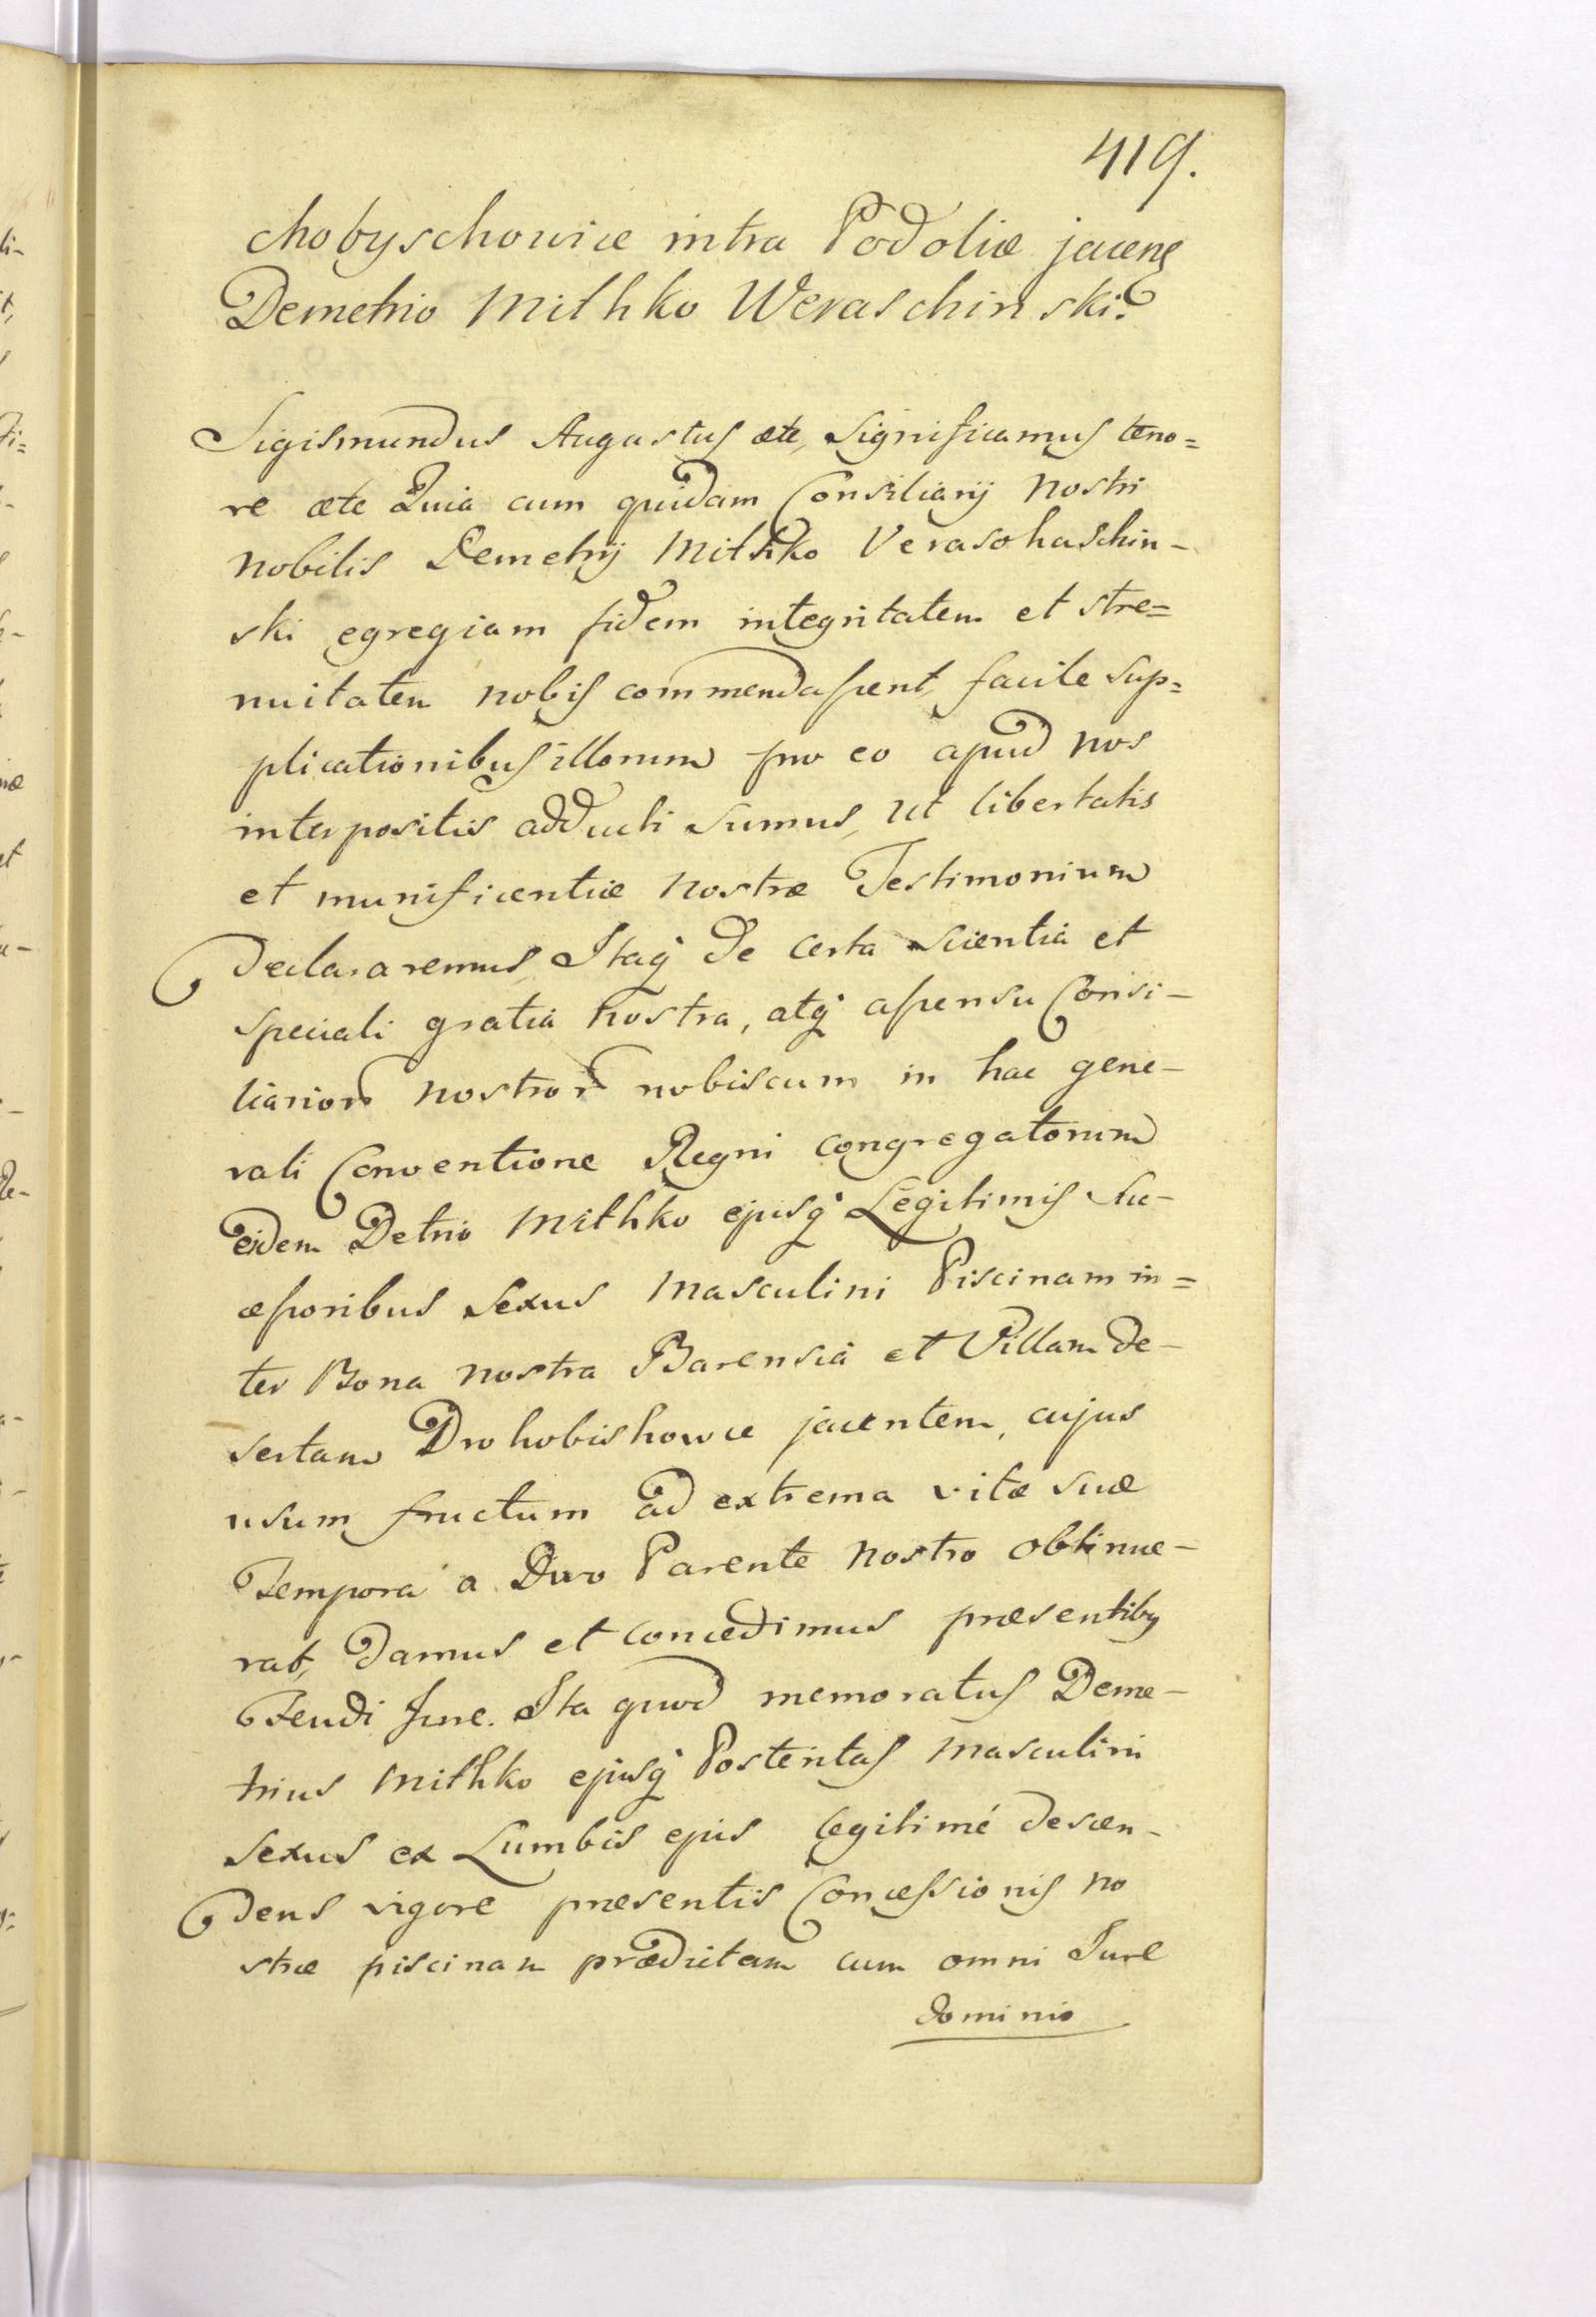 419.
chobyschowice intra Podoliæ jacens
Demetrio Mithko Weraschinski.
Sigismundus Augustus ætc, Significamus teno=
re ætc Quia cum quidam Consiliarij Nostri
Nobilis Demetrij Mithko Verasohaschin-
ski egregiam fidem integritatem et stre=
nuitatem nobis commendassent, facile sup=
plicationibus illorum pro eo apud nos
interpositis adducti sumus, ut libertatis
et munificentiæ Nostræ Testimonium
declararemus, Itaq de certa scientia et
speciali gratia nostra, atq assensu Consi-
liarior nostror nobiscum in hac gene-
rali Conventione Regni congregatorum
eidem Detrio Mithko ejusq Legitimis Suc-
cessoribus Sexus Masculini Piscinam in=
ter Bona nostra Barensia et Villam de-
sertam Drohobishowce jacentem, cujus
usum fructum ad extrema vitæ suæ
Tempora a Divo Parente Nostro obtinue-
rat, damus et concedimus præsentibus
Feudi Jure. Ita quod memoratus Deme-
trius Mithko ejusq Posteritas Masculini
Sexus ex Lumbis ejus legitimé descen-
dens vigore præsentis Concessionis no
stræ piscinam prædictam cum omni Jure
dominio